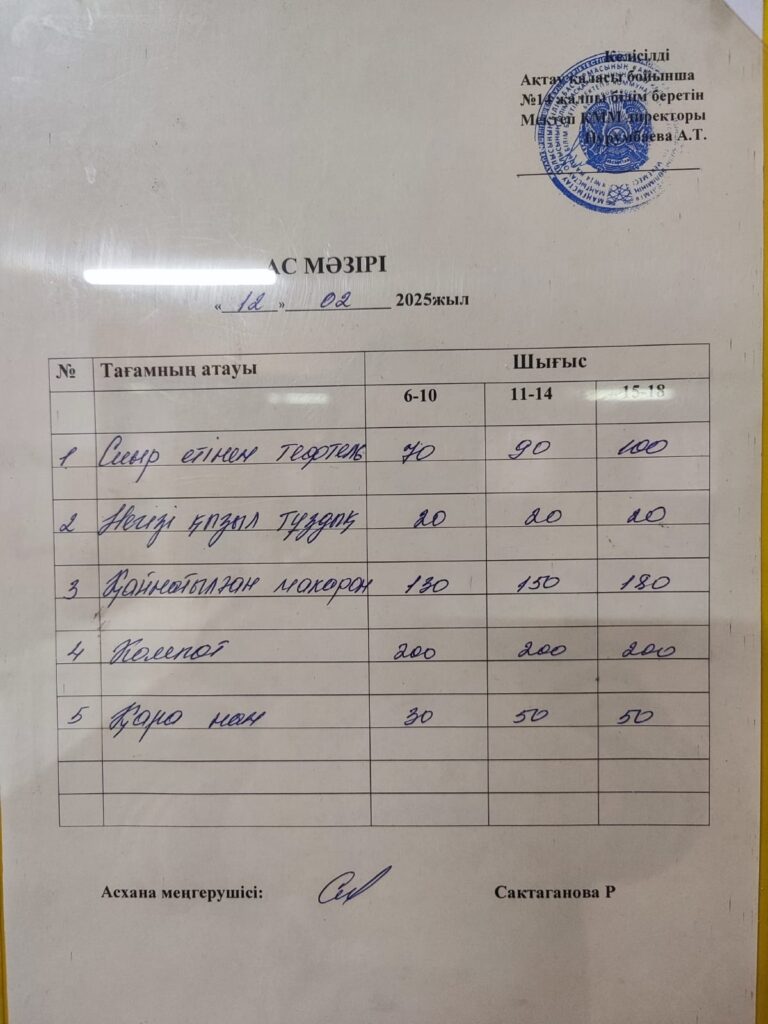 Келісілді
Ақтау қаласы бойынша
№14 жалпы білім беретін
Мектеп КММ директоры
Нурумбаева А.Т.
АС МӘЗІРІ
«12» 02 2025жыл
№ Тағамның атауы Шығыс
6-10 11-14 15-18
1 Сиыр етінен тефтель 70 90 100
2 Негізі қызыл тұздық 20 20 20
3 Қайнатылған макарон 130 150 180
4 Компот 200 200 200
5 Қара нан 30 50 50
Асхана меңгерушісі: Сактаганова Р